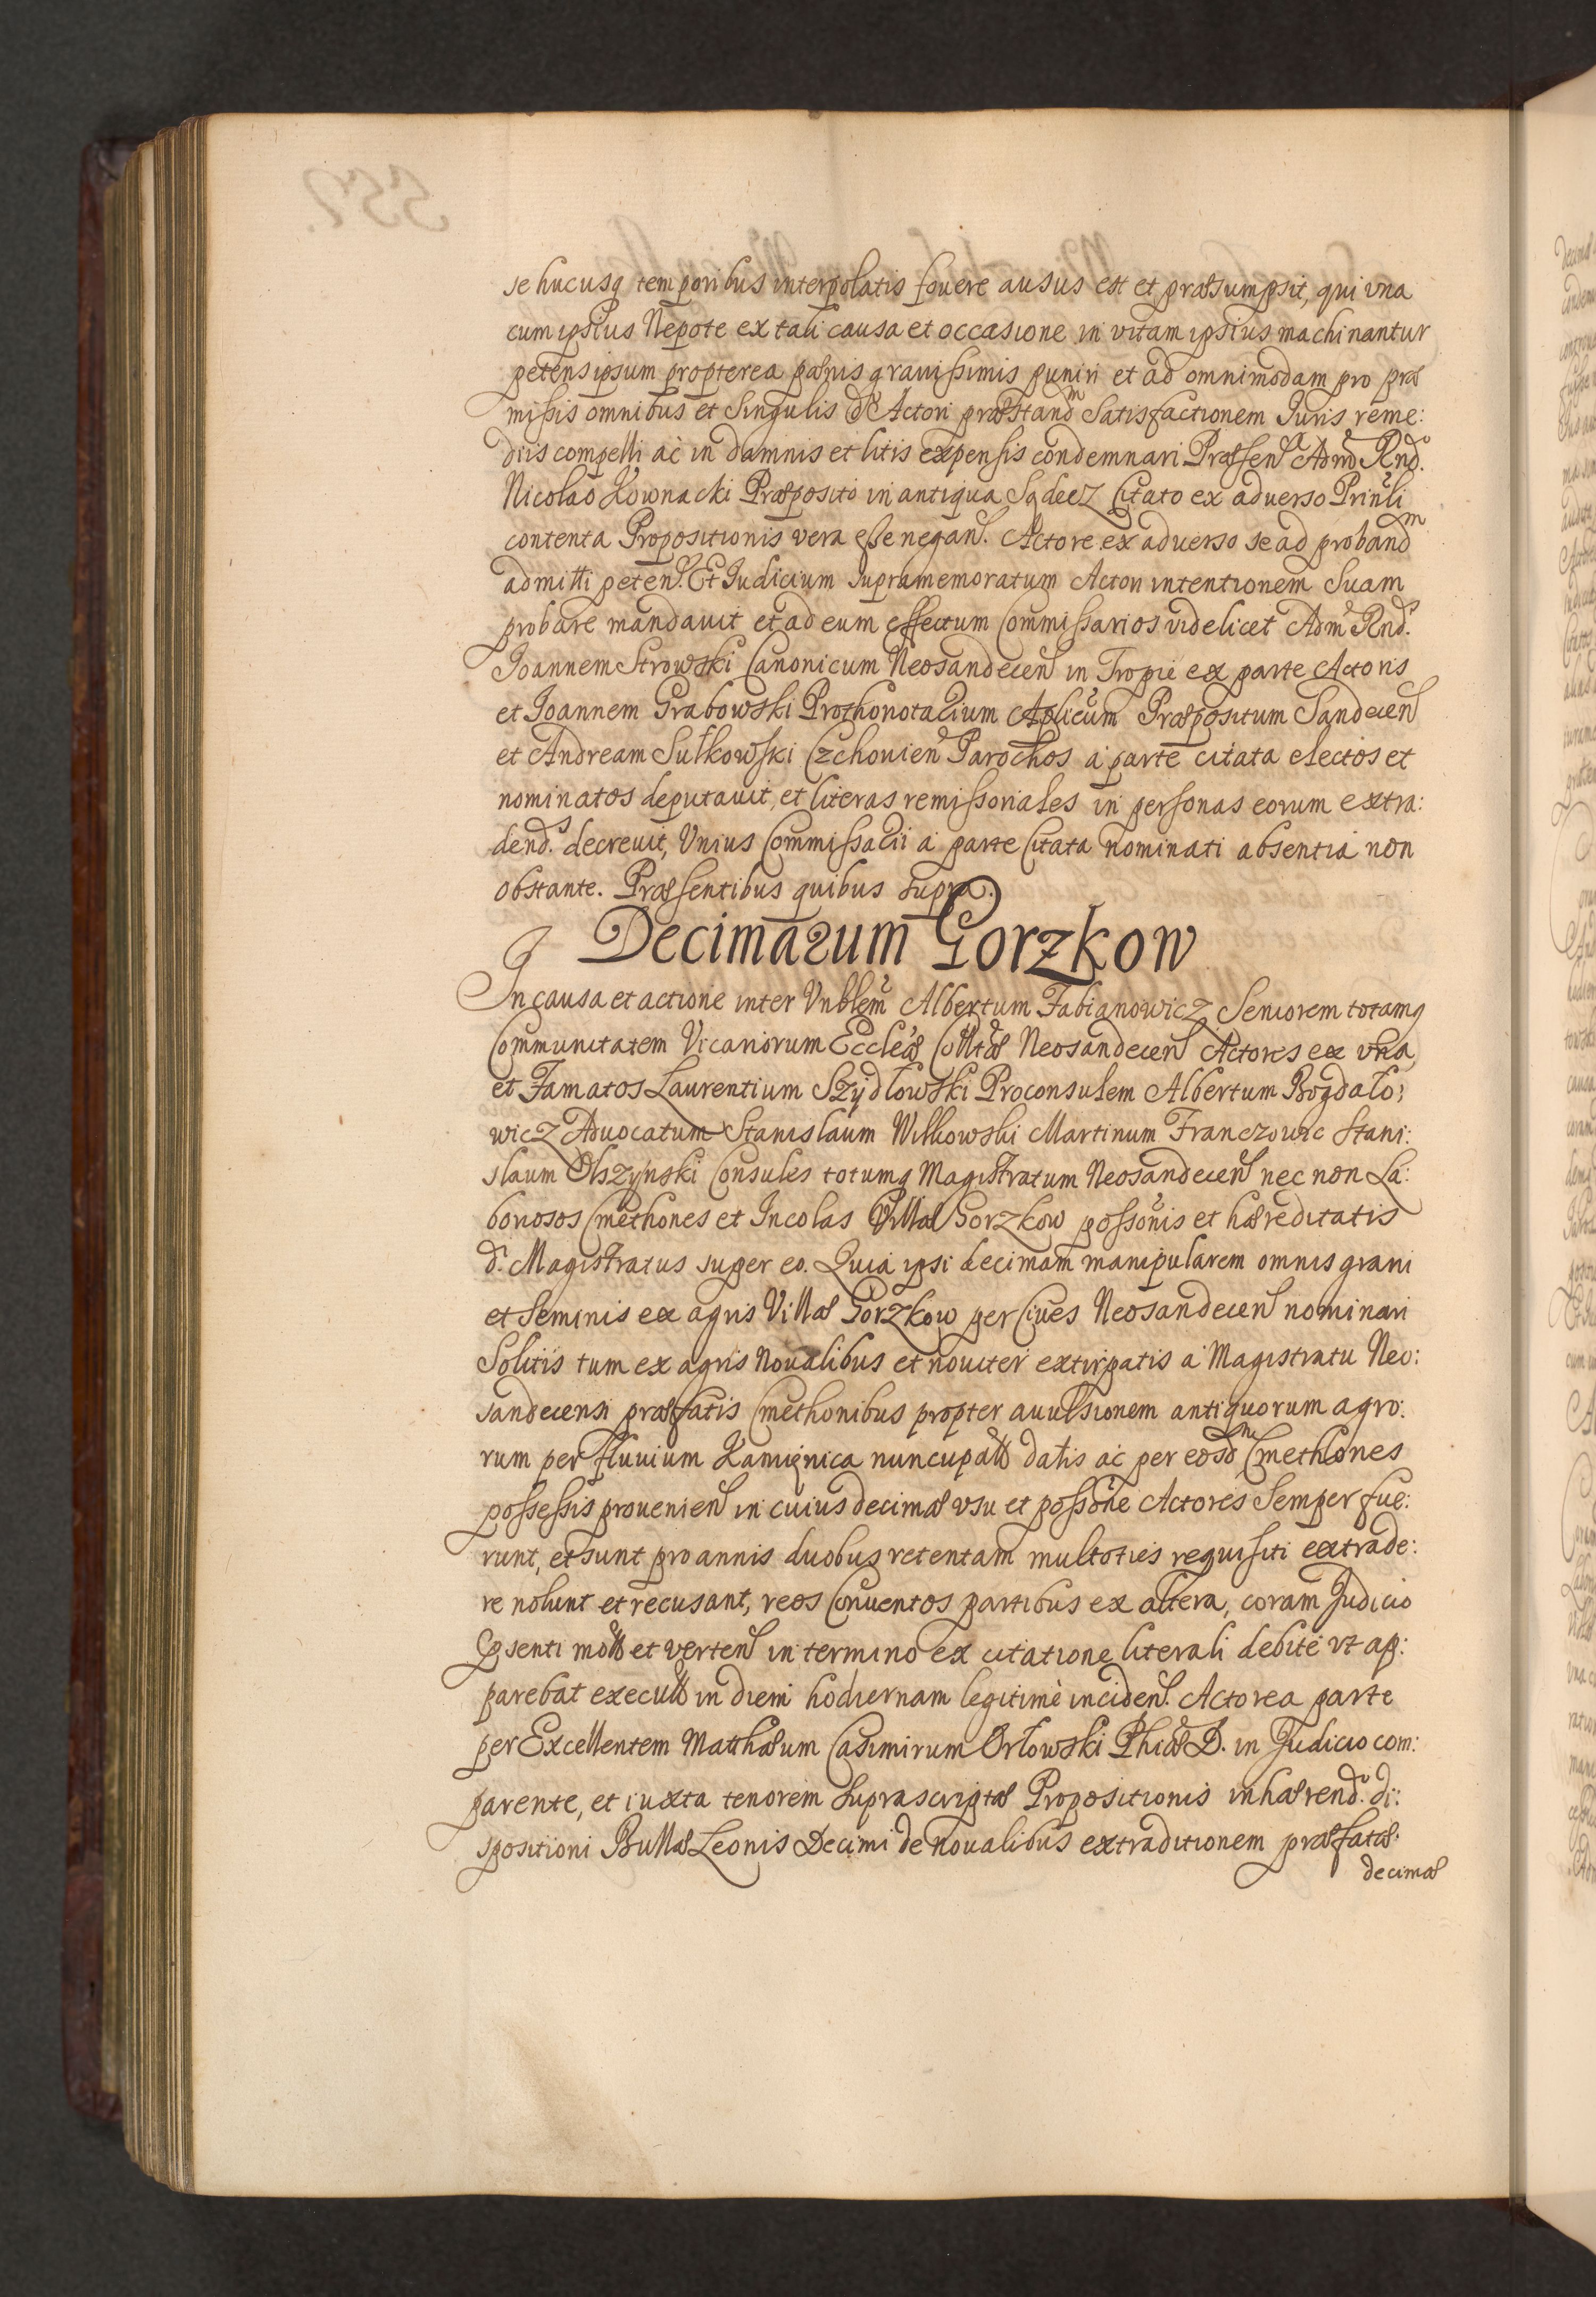 se hucusq temporibus interpolatis fouere ausus est et præsumpsit, qui vna
cum ipsius Nepote ex tali causa et occasione in vitam ipsius machinantur
petens ipsum propterea pænis grauissimis puniri et ad omnimodam pro præ
missis omnibus et Singulis dᵒ Actori præstandᵐ Satisfactionem Juris reme:
diis compelli ac in damnis et litis expensis condemnari Præsen Admᵒ Rndᵒ.
Nicolao Kownacki Præposito in antiqua Sądecz Citato ex aduerso Prinᵉli
contenta Propositionis vera esse negan. Actore ex aduerso se ad probandᵐ
admitti peten. Et Judicium Supramemoratum Actori intentionem Suam
probare mandauit et ad eum effectum Commissarios videlicet Admᵒ Rndˢ.
Joannem Strowski Canonicum Neosandecen in Tropie ex parte Actoris
et Joannem Grabowski Prothonotarium Aplicum Præpositum Sandecen
et Andream Sułkowski Czchouien Parochos a parte citata electos et
nominatos deputauit, et literas remissoriales in personas eorum extra:
dendˢ. decreuit, Vnius Commissarii a parte Citata nominati absentia non
obstante. Præsentibus quibus supra.
Decimarum Gorzkow
In causa et actione inter Vnblem Albertum Fabianowicz Seniorem totamq
Communitatem Vicariorum Eccleæ Colltæ Neosandecen Actores ex vna
et Famatos Laurentium Szydłowski Proconsulem Albertum Bogdało:
wicz Aduocatum Stanislaum Wilkowski Martinum Franczowic Stani:
slaum Olszynski Consules totumq Magistratum Neosandecen nec non La:
boriosos Cmethones et Incolas Villæ Gorzkow possonis et hæreditatis
dⁱ. Magistratus super eo. Quia ipsi decimam manipularem omnis grani
et Seminis ex agris Villæ Gorzkow per Ciues Neosandecen nominari
Solitis tum ex agris Noualibus et nouiter extirpatis a Magistratu Neo:
sandecensi præfatis Cmethonibus propter auulsionem antiquorum agro:
rum per fluuium Kamięnica nuncupatt datis ac per eosdᵐ Cmethones
possessis prouenien in cuius decimæ vsu et possone Actores Semper fue:
runt, et sunt pro annis duobus retentam multoties requisiti extrade:
re nolunt et recusant, reos Conuentos partibus ex altera, coram Judicio
psenti mott et verten in termino ex citatione literali debite vt ap:
parebat executt in diem hodiernam legitime inciden. Actorea parte
per Excellentem Matthæum Casimirum Orłowski Phiæ D. in Judicio com:
parente, et iuxta tenorem Suprascriptæ Propositionis inhærendᵒ. di:
spositioni Bullæ Leonis Decimi de noualibus extraditionem præfatæ
decimæ